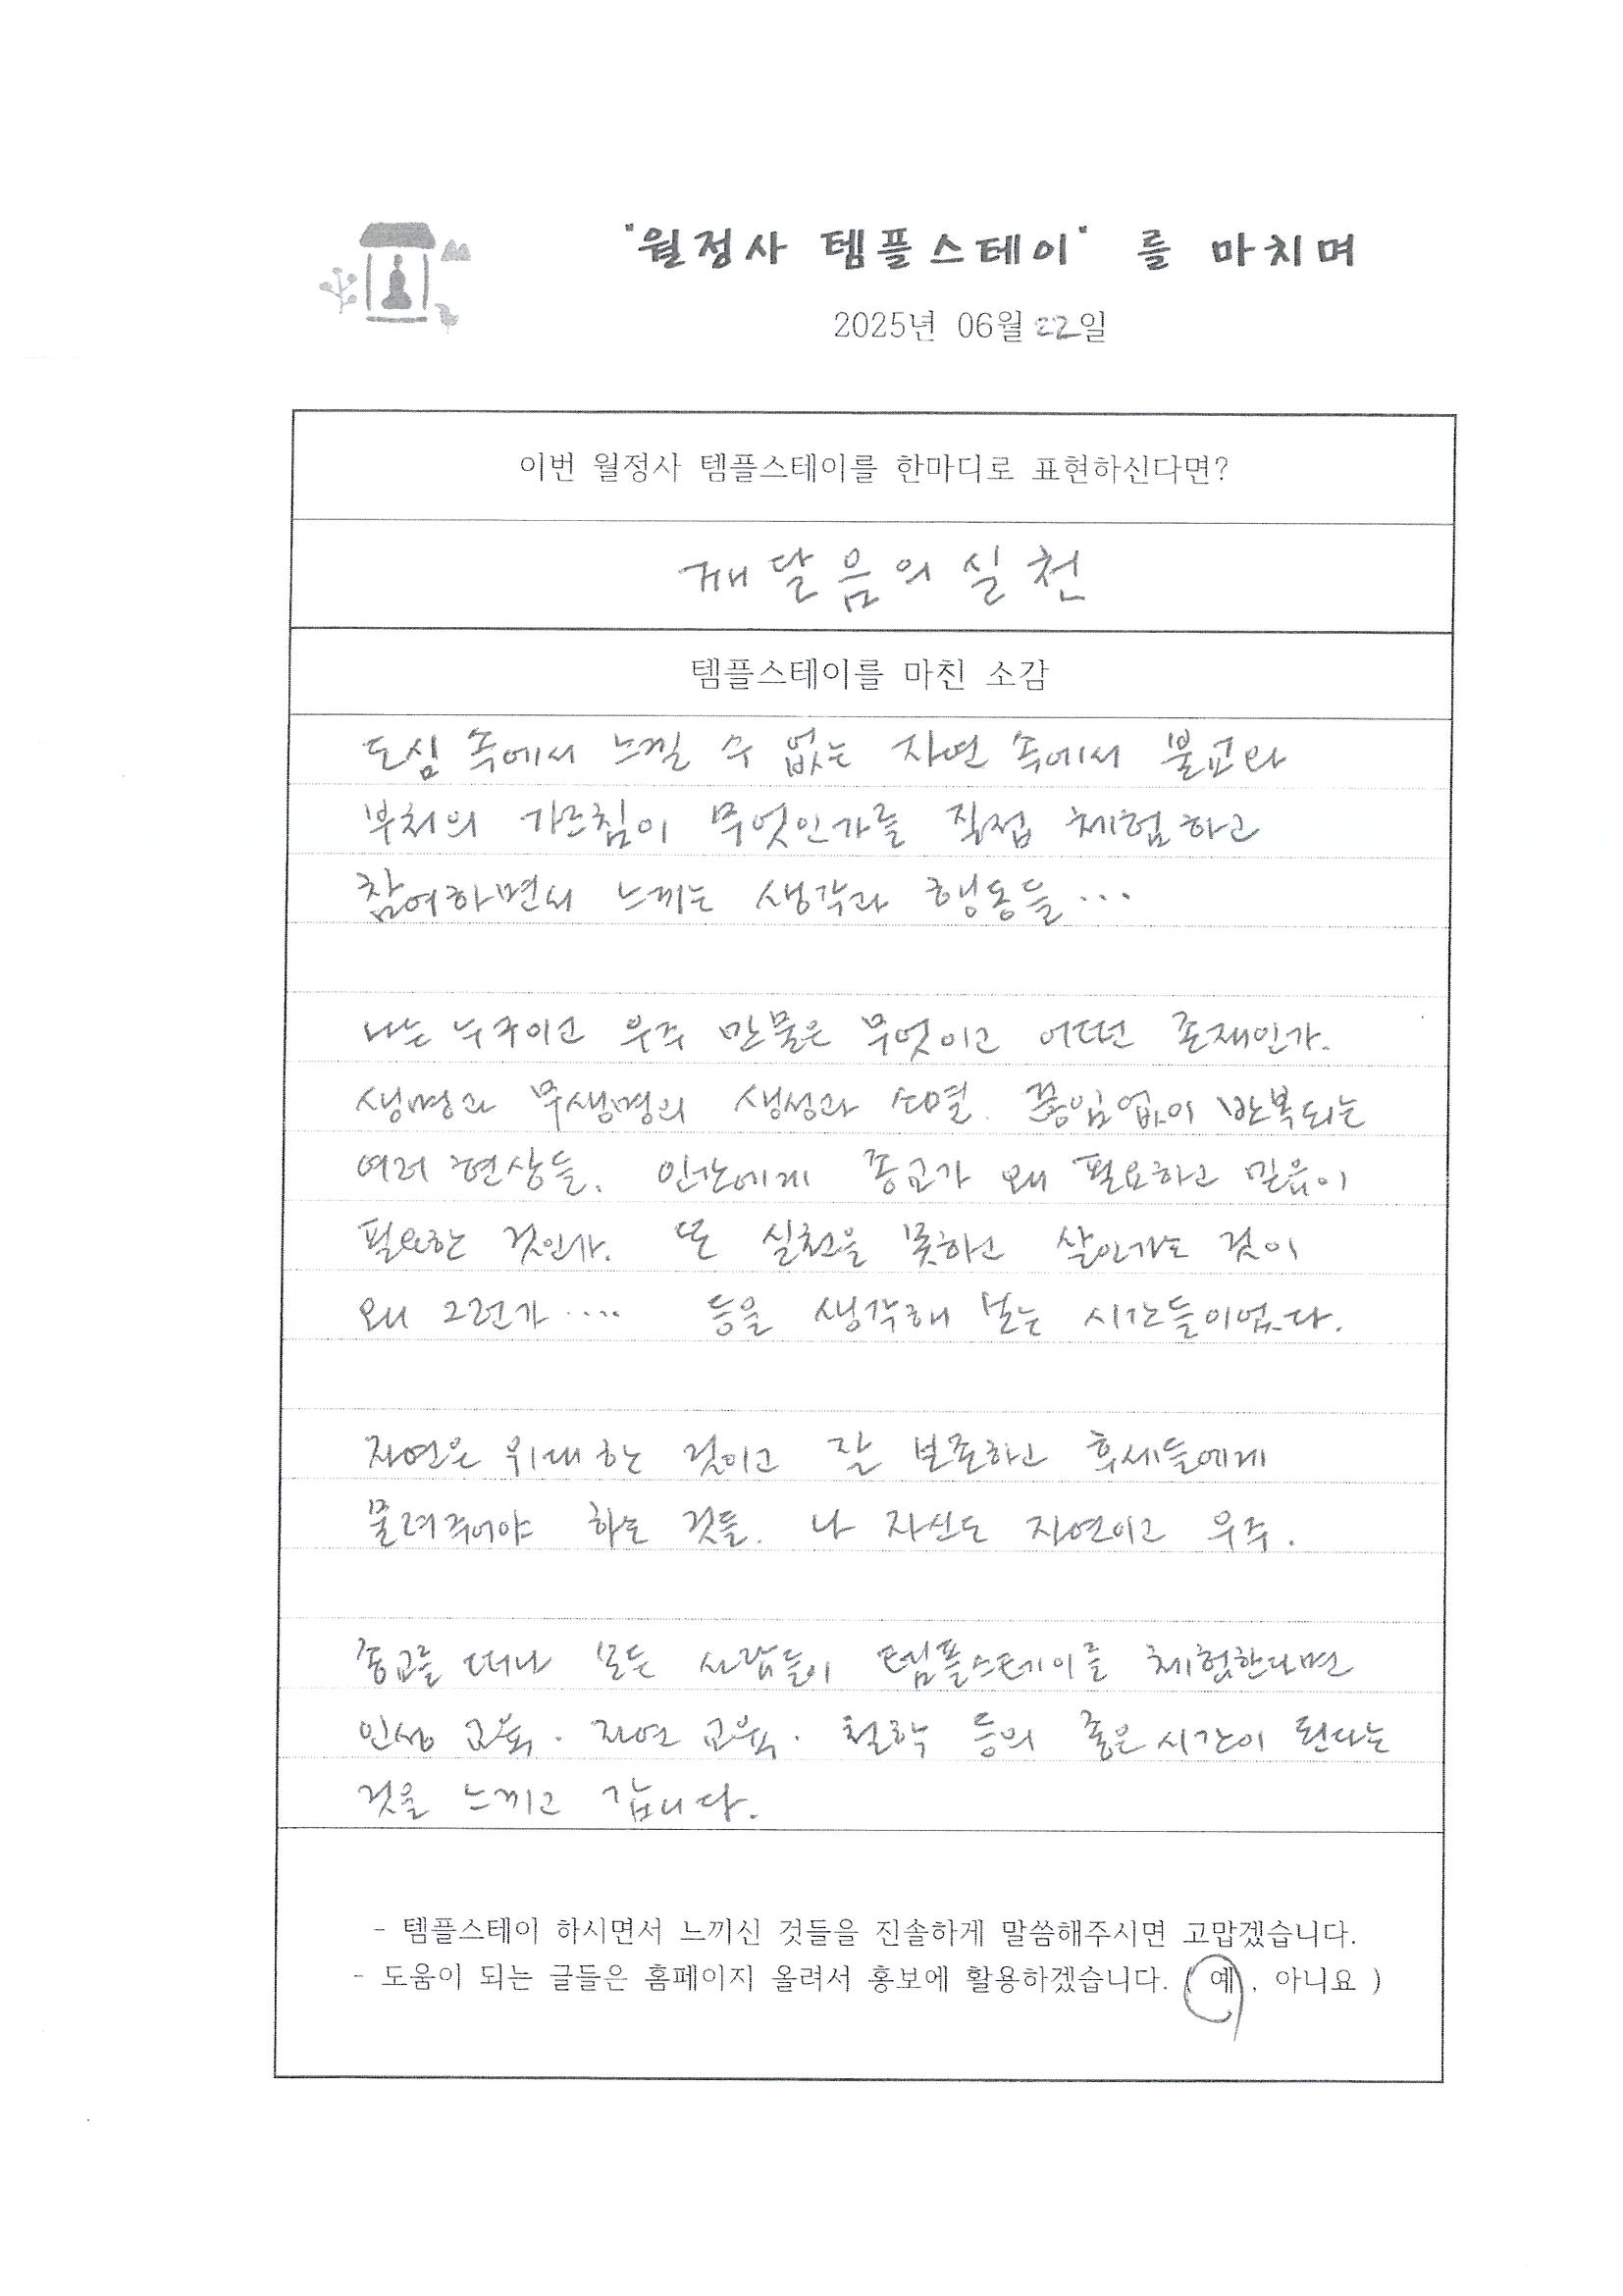 "월정사 템플스테이"를 마치며
2025년 06월 22일
이번 월정사 템플스테이를 한마디로 표현하신다면?
깨달음의 실천
템플스테이를 마친 소감
도심 속에서 느낄 수 없는 자연 속에서 불교와
부처의 가르침이 무엇인가를 직접 체험하고
참여하면서 느끼는 생각과 행동들...
나는 누구이고 우주 만물은 무엇이고 어떤 존재인가.
생명과 무생명의 생성과 소멸. 끊임없이 반복되는
여러 현상들. 인간에게 종교가 왜 필요하고 믿음이
필요한 것인가. 또 실천을 못하고 살아가는 것이
왜 그런가.... 등을 생각해 보는 시간들이었다.
자연은 위대한 것이고 잘 보존하고 후세들에게
물려주어야 하는 것들. 나 자신도 자연이고 우주.
종교를 떠나 모든 사람들이 템플스테이를 체험한다면
인성 교육. 자연 교육. 철학 등의 좋은 시간이 된다는
것을 느끼고 갑니다.
- 템플스테이 하시면서 느끼신 것들을 진솔하게 말씀해주시면 고맙겠습니다.
- 도움이 되는 글들은 홈페이지 올려서 홍보에 활용하겠습니다. ( 예 , 아니요 )